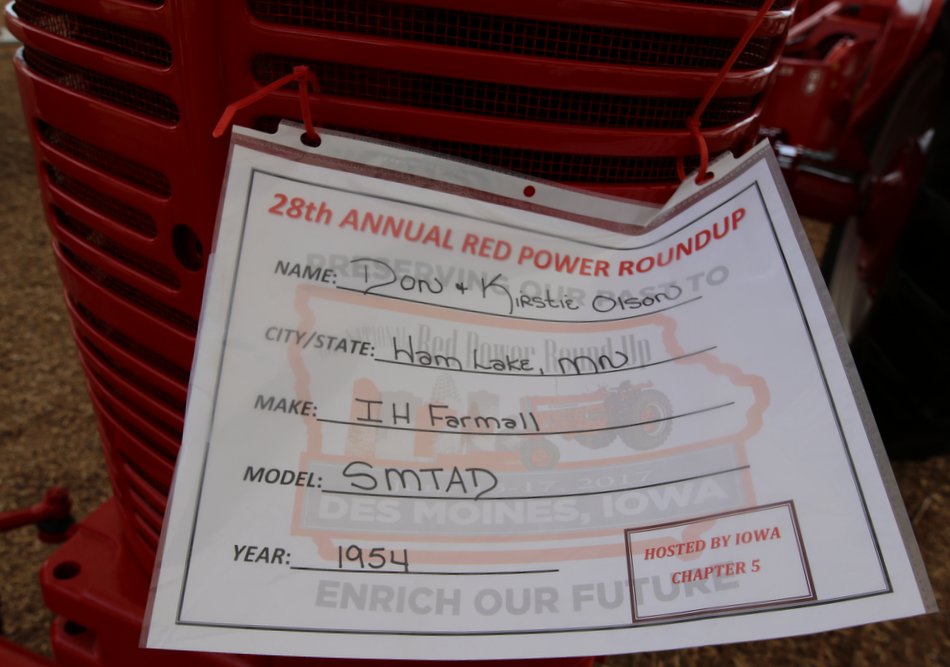 28th ANNUAL RED POWER ROUNDUP
PRESERVING OUR PAST TO
NAME: Don + Kirstie Olson
NATIONAL Red Power Round-Up
CITY/STATE: Ham Lake, MN
MAKE: IH Farmall
MODEL: SMTAD
-17, 2017
DES MOINES, IOWA
YEAR: 1954
HOSTED BY IOWA
CHAPTER 5
ENRICH OUR FUTURE